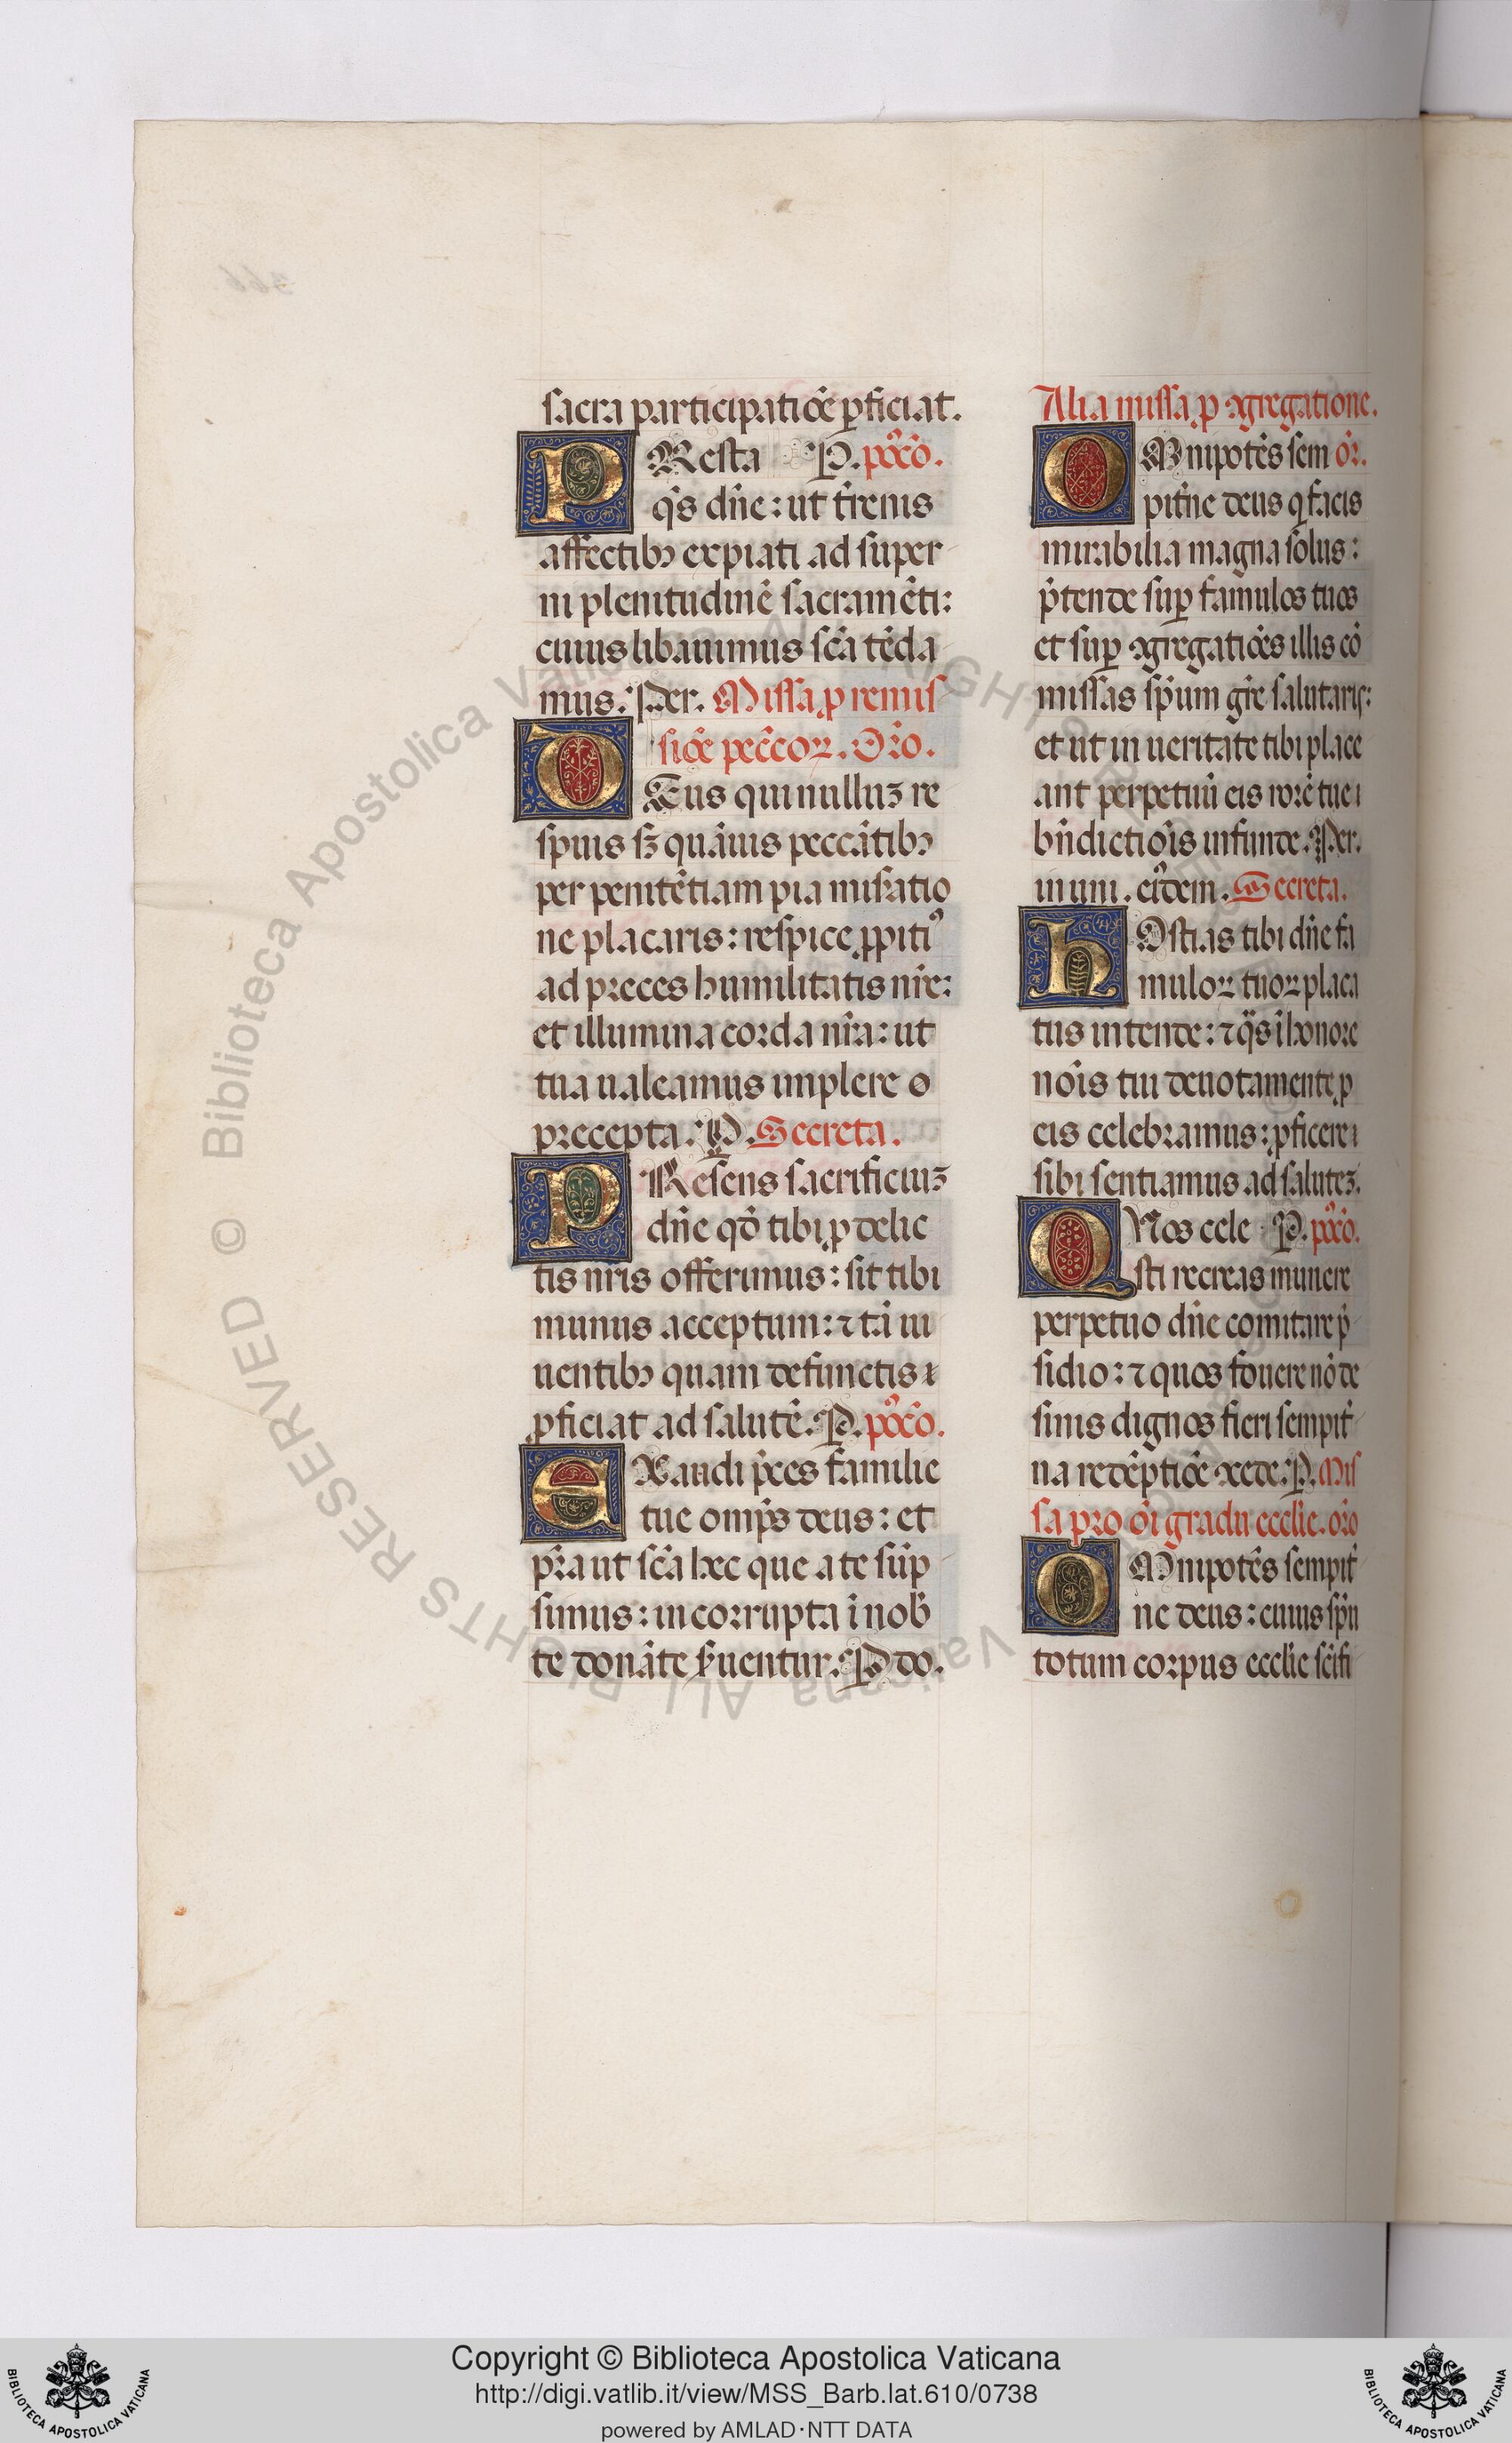 sacra participatiõe ꝓficiat.
PResta P. poꝰcõ.
q̃s dñe: ut t̃renis
affectibꝰ expiati ad super
ni plenitudinẽ sacramẽti:
cuius libauimus sc̃a tẽda
mus. Per. Missa ꝓ remis
siõe pec̃coꝝ. Oro.
DEus qui nulluꝫ re
spuis sꝫ quãuis peccãtibꝰ
per penitẽtiam pia misatio
ne placaris: respice ꝓpitiꝰ
ad preces humilitatis nr̃e:
et illumina corda nr̃a: ut
tua ualeamus implere o
precepta. P. Secreta.
PResens sacrificiuꝫ
dñe qđ tibi ꝓ delic
tis nr̃is offerimus: sit tibi
munus acceptum: ⁊ tã ui
uentibꝰ quam defunctis
ꝓficiat ad salutẽ. P. poꝰcõ.
EXaudi p̃ces familie
tue omp̃s deus: et
pr̃a ut sc̃a hec que a te sũp
simus: in corrupta ĩ nob̃
te donãte s̃uentur. P do.
Alia missa ꝓ ꝯgregatione.
OMnipotẽs sem or̃.
pit̃ne deus q̃ facis
mirabilia magna solus:
p̃tende suꝑ famulos tuos
et suꝑ ꝯgregatiões illis cõ
missas sp̃um gr̃e salutaris:
et ut in ueritate tibi place
ant perpetuũ eis rorẽ tue
bñdictiõis infunde. Per.
in uni. eiꝰdem. Secreta.
HOstias tibi dñe fa
muloꝝ tuoꝝ placa
tus intende: ⁊ q̃s ĩ honore
noĩs tui deuota mente ꝓ
eis celebramus: ꝓficere
sibi sentiamus ad saluteꝫ.
QUos cele P. poꝰcõ.
sti recreas munere
perpetuo dñe comitare p̃
sidio: ⁊ quos fouere nõ de
sinis dignos fieri sempit̃
na redẽptiõe ꝯcede. P. Mis
sa pro oĩ gradu eccl̃ie. or̃o
OMnipotẽs sempit̃
ne deus: cuius sp̃u
totum corpus eccl̃ie sc̃ifi
Copyright © Biblioteca Apostolica Vaticana
http://digi.vatlib.it/view/MSS_Barb.lat.610/0738
powered by AMLAD·NTT DATA
BIBLIOTECA APOSTOLICA VATICANA
BIBLIOTECA APOSTOLICA VATICANA
© Biblioteca Apostolica Vaticana ALL RIGHTS RESERVED